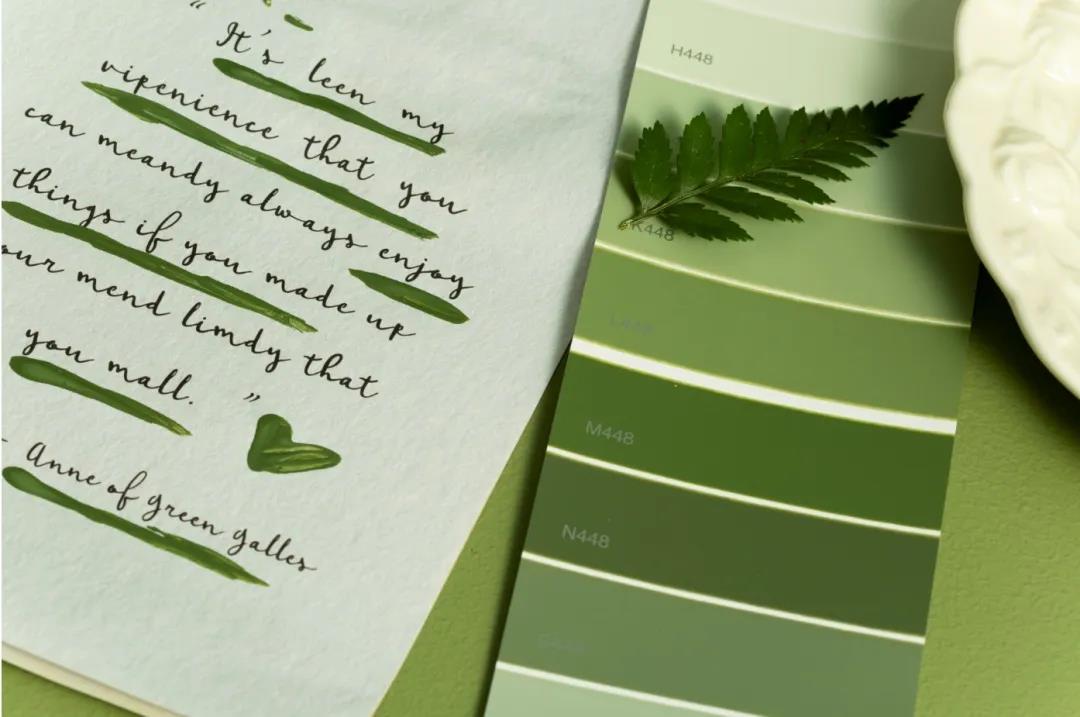 “
It's leen my
vipenience that you
can meandy always enjoy
things if you made up
our mend limdy that
you mall. ”
- Anne of green galles
H448
K448
L448
M448
N448